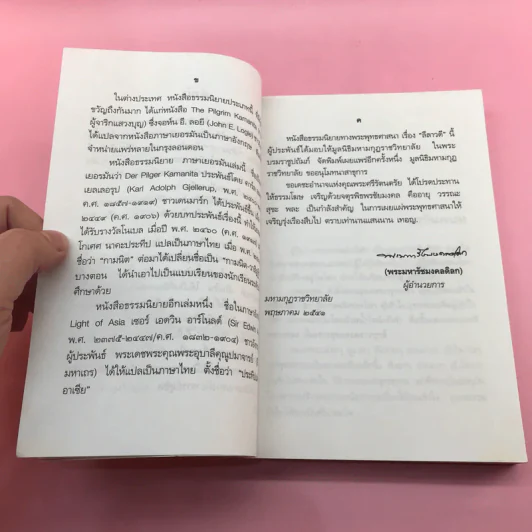 ข
ในต่างประเทศ หนังสือธรรมนิยายประเภทนี้
ขวัญถึงกันมาก ได้แก่หนังสือ The Pilgrim Kamanita
ผู้จาริกแสวงบุญ) ซึ่งจอห์น อี. ลอยี (John E. Logie)
ได้แปลจากหนังสือภาษาเยอรมันเป็นภาษาอังกฤษ
จำหน่ายแพร่หลายในกรุงลอนดอน
หนังสือธรรมนิยาย ภาษาเยอรมันเล่มนี้
เยอรมันว่า Der Pilger Kamanita ประพันธ์โดย
เยลเลอรุป (Karl Adolph Gjellerup, พ.ศ.
ค.ศ. ๑๘๕๗-๑๙๑๙) ชาวเดนมาร์ก ได้ประพันธ์ขึ้น
๒๔๔๙ (ค.ศ. ๑๙๐๖) ด้วยบทประพันธ์เรื่องนี้
ได้รับรางวัลโนเบล เมื่อปี พ.ศ. ๒๔๖๐
โกเศศ นาคะประทีป แปลเป็นภาษาไทย เมื่อ พ.ศ.
ชื่อว่า "กามนิต" ต่อมาได้เปลี่ยนชื่อเป็น
บางตอน ได้นำเอาไปเป็นแบบเรียนของนักเรียน
ศึกษาด้วย
หนังสือธรรมนิยายอีกเล่มหนึ่ง ชื่อในภาษา
Light of Asia เซอร์ เอดวิน อาร์โนลด์ (Sir Edwin
พ.ศ. ๒๓๗๕-๒๔๔๗/ค.ศ. ๑๘๓๒-๑๙๐๔)
ผู้ประพันธ์ พระเดชพระคุณพระอุบาลีคุณูปมาจารย์
มหาเถร) ได้ให้แปลเป็นภาษาไทย ตั้งชื่อว่า
อาเซีย"
ค
หนังสือธรรมนิยายทางพระพุทธศาสนา เรื่อง "ลีลาวดี" นี้
ผู้ประพันธ์ได้มอบให้มูลนิธิมหามกุฏราชวิทยาลัย ในพระ
บรมราชูปถัมภ์ จัดพิมพ์เผยแพร่อีกครั้งหนึ่ง มูลนิธิมหามกุฏ
ราชวิทยาลัย ขออนุโมทนาสาธุการ
ขอเดชะอำนาจแห่งคุณพระศรีรัตนตรัย ได้โปรดประทาน
ให้ธรรมโฆษ เจริญด้วยจตุรพิธพรชัยมงคล คืออายุ วรรณะ
สุขะ พละ เป็นกำลังสำคัญ ในการเผยแผ่พระพุทธศาสนาให้
เจริญรุ่งเรืองสืบไป ตราบเท่านานแสนนาน เทอญ.
(พระมหารัชมงคลดิลก)
ผู้อำนวยการ
มหามกุฏราชวิทยาลัย
พฤษภาคม ๒๕๔๑